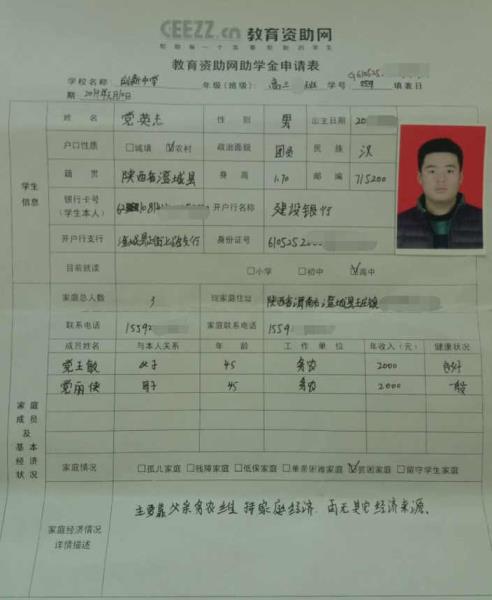 CEEZZ.cn 教育资助网
帮助每一个需要帮助的学生
教育资助网助学金申请表
学校名称 中学 年级(班级): 高二 班 学号 填表日
期
姓名 党英杰 性别 男 出生日期 20
户口性质 □城镇 ☑农村 政治面貌 团员 民族 汉
籍贯 陕西省澄城县 身高 1.70 邮编 715200
学生
信息
银行卡号
(学生本人)
开户行名称 建设银行
开户行支行 身份证号 6105252000
目前就读 □小学 □初中 ☑高中
家庭总人数 3 现家庭住址 陕西省渭南市澄城县
联系电话 1559 家庭联系电话 1559
成员姓名 与本人关系 年龄 工作单位 年收入(元) 健康状况
党玉敏 父子 45 务农 2000 良好
党丽侠 母子 45 务农 2000 一般
家庭
成员
及
基本
经济
状况
家庭情况 □孤儿家庭 □残障家庭 □低保家庭 □单亲困难家庭 ☑贫困家庭 □留守学生家庭
家庭经济情况
详情描述
主要靠父亲务农维持家庭经济,而无其它经济来源。